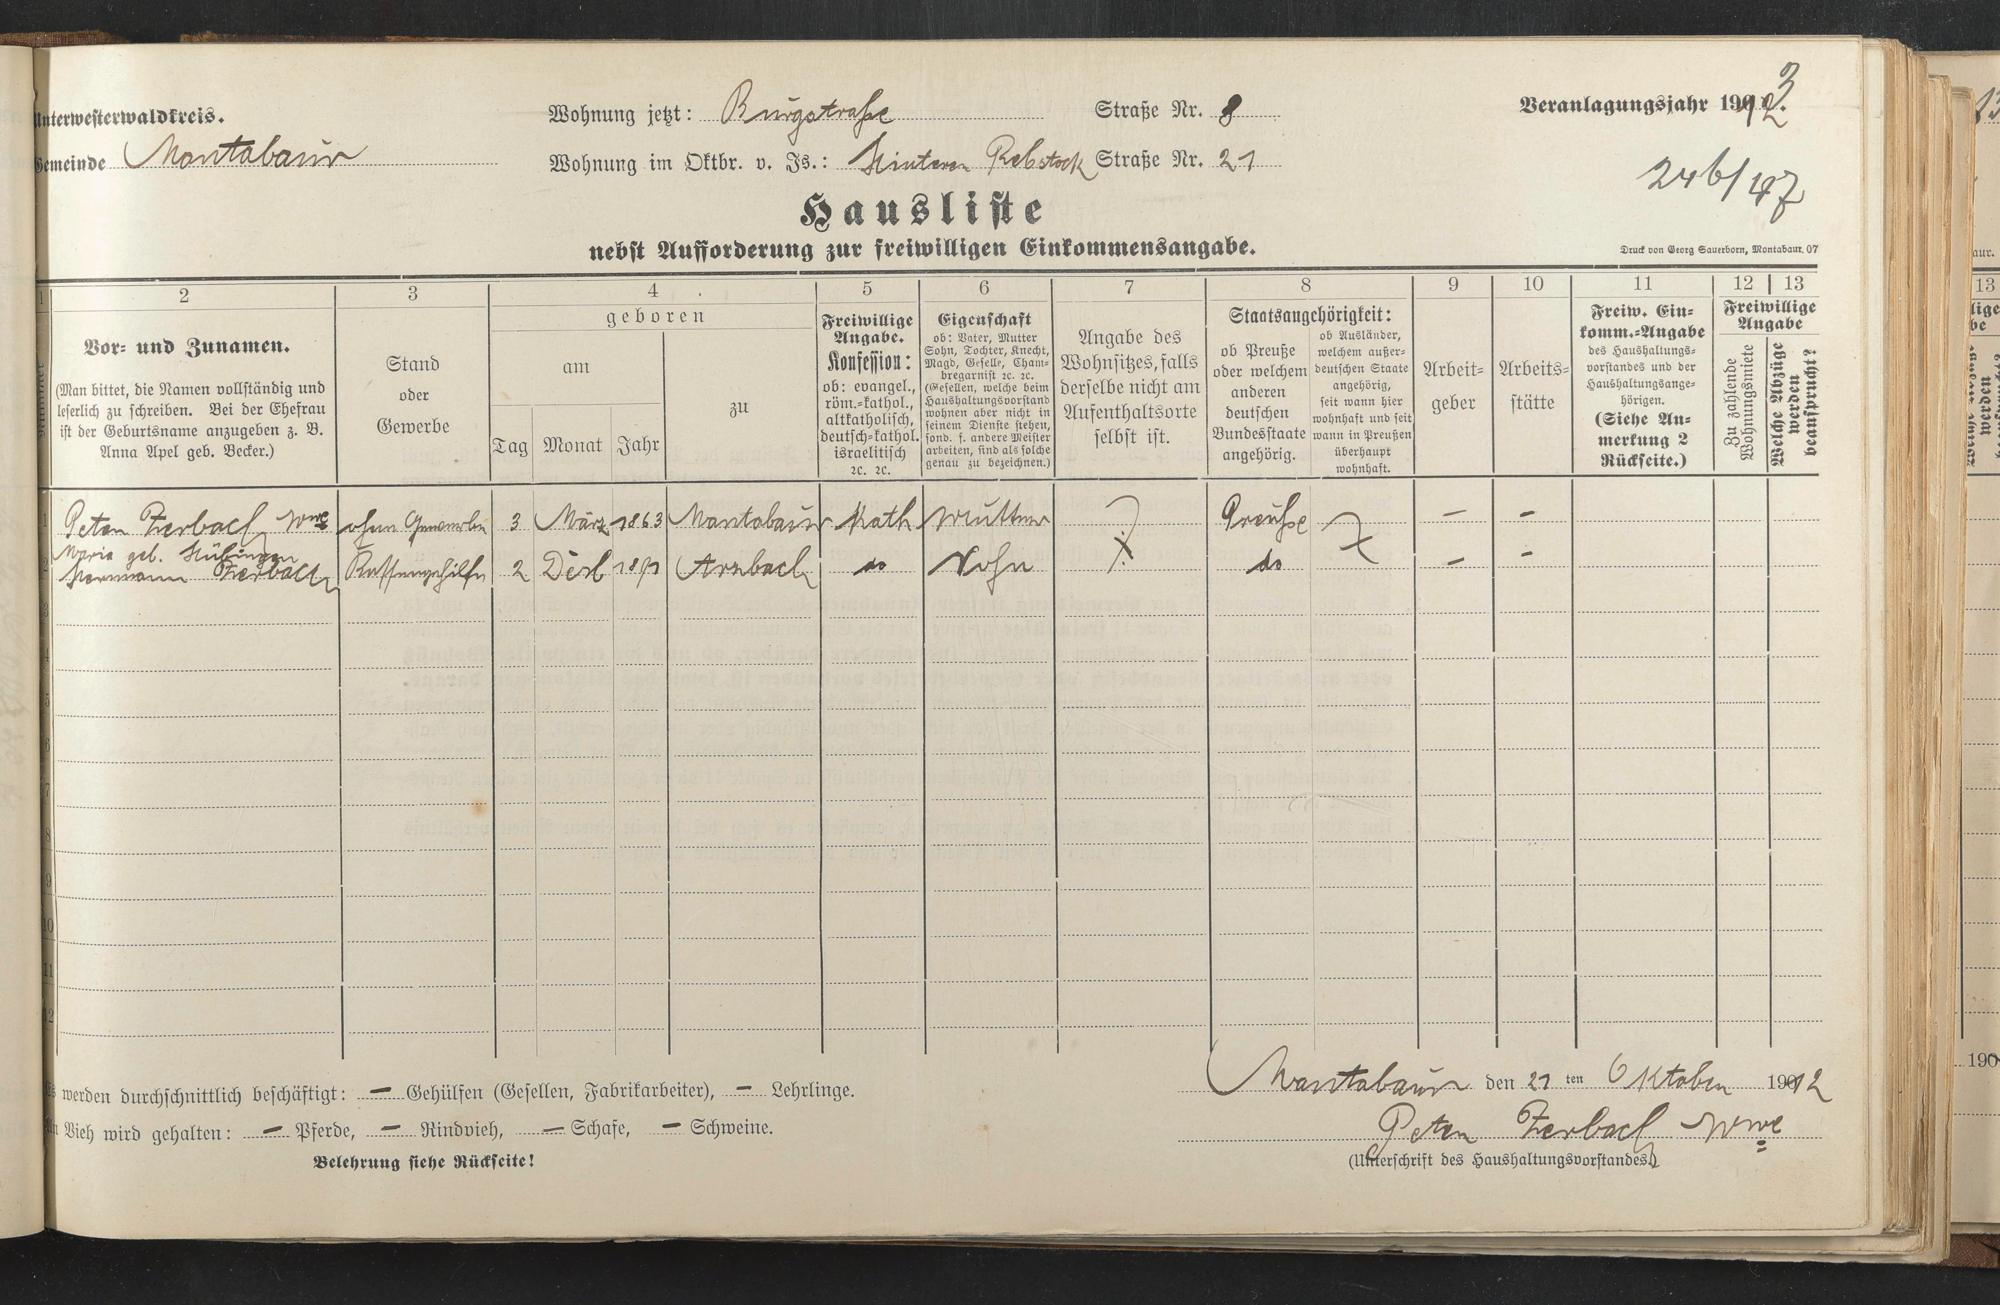 Unterwesterwaldkreis.
Gemeinde Montabaur
Wohnung jetzt: Burgstraße Straße Nr. 8
Wohnung im Oktbr. v. Js.: Hinterer Rebstock Straße Nr. 21
Veranlagungsjahr 1912. 3
246/47
Hausliste
nebst Aufforderung zur freiwilligen Einkommensangabe.
Druck von Georg Sauerborn, Montabaur. 07
1 2 3 4 5 6 7 8 9 10 11 12 13
Nummer
Vor- und Zunamen.
(Man bittet, die Namen vollständig und
leserlich zu schreiben. Bei der Ehefrau
ist der Geburtsname anzugeben z. B.
Anna Apel geb. Becker.)
Stand
oder
Gewerbe
geboren
am
Tag Monat Jahr
zu
Freiwillige
Angabe.
Konfession:
ob: evangel.,
röm.-kathol.,
altkatholisch,
deutsch-kathol.
israelitisch
ꝛc. ꝛc.
Eigenschaft
ob: Vater, Mutter
Sohn, Tochter, Knecht,
Magd, Geselle, Cham-
bregarnist ꝛc. ꝛc.
(Gesellen, welche beim
Haushaltungsvorstand
wohnen aber nicht in
seinem Dienste stehen,
sond. f. andere Meister
arbeiten, sind als solche
genau zu bezeichnen.)
Angabe des
Wohnsitzes, falls
derselbe nicht am
Aufenthaltsorte
selbst ist.
Staatsangehörigkeit:
ob Preuße
oder welchem
anderen
deutschen
Bundesstaate
angehörig.
ob Ausländer,
welchem außer-
deutschen Staate
angehörig,
seit wann hier
wohnhaft und seit
wann in Preußen
überhaupt
wohnhaft.
Arbeit-
geber
Arbeits-
stätte
Freiw. Ein-
komm.-Angabe
des Haushaltungs-
vorstandes und der
Haushaltungsange-
hörigen.
(Siehe An-
merkung 2
Rückseite.)
Freiwillige
Angabe
Zu zahlende
Wohnungsmiete
Welche Abzüge
werden
beansprucht?
1 Peter Zerbach Wwe ohne Gewerbe 3 März 1863 Montabaur Kath Mutter Preuße – –
Maria geb. Hübinger
2 Hermann Zerbach 2 1891 Arzbach do Sohn do – –
3
4
5
6
7
8
9
10
11
12
Es werden durchschnittlich beschäftigt: – Gehülfen (Gesellen, Fabrikarbeiter), – Lehrlinge.
An Vieh wird gehalten: – Pferde, – Rindvieh, – Schafe, – Schweine.
Belehrung siehe Rückseite!
Montabaur den 21 ten Oktober 1912
Peter Zerbach Wwe
(Unterschrift des Haushaltungsvorstandes.)